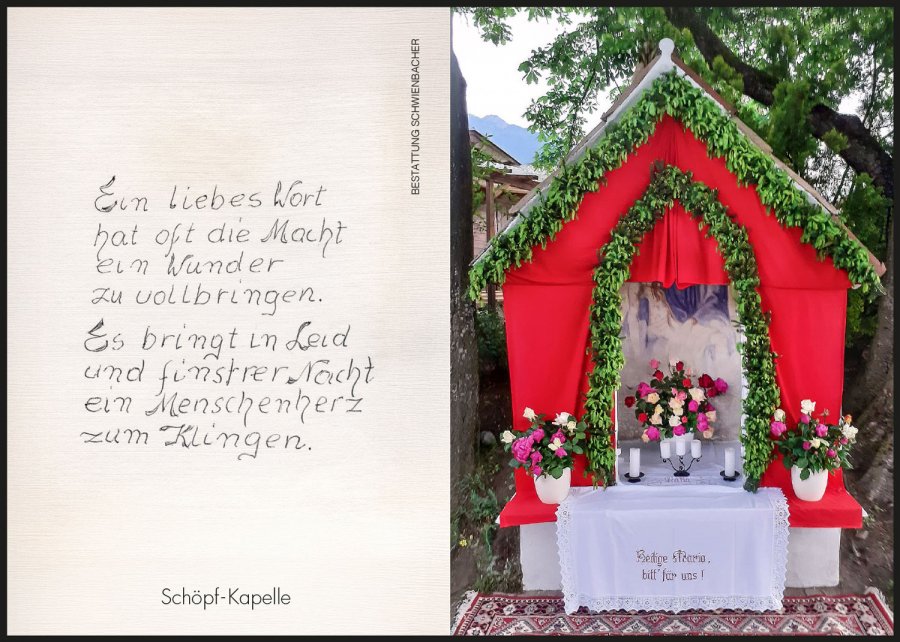 BESTATTUNG SCHWIENBACHER
Ein liebes Wort
hat oft die Macht
ein Wunder
zu vollbringen.
Es bringt in Leid
und finstrer Nacht
ein Menschenherz
zum Klingen.
Schöpf-Kapelle
Heilige Maria,
bitt' für uns!